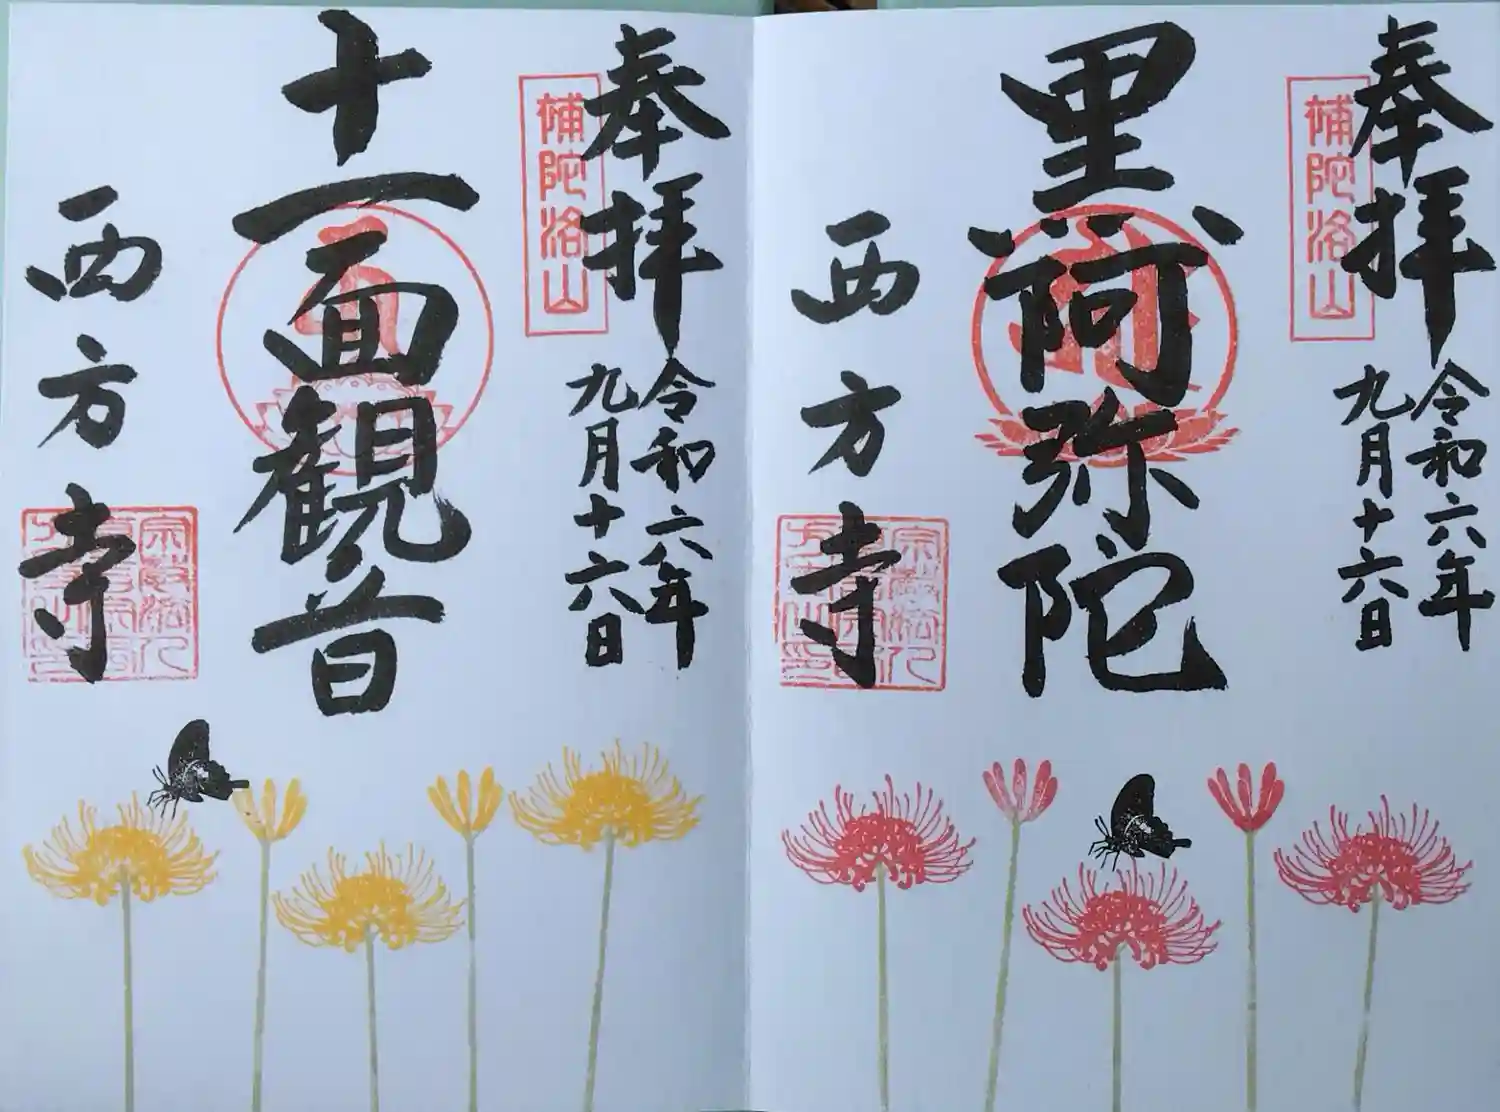 奉拝
補陀洛山
令和六年
九月十六日
黒阿弥陀
西方寺
奉拝
補陀洛山
令和六年
九月十六日
十一面観音
西方寺